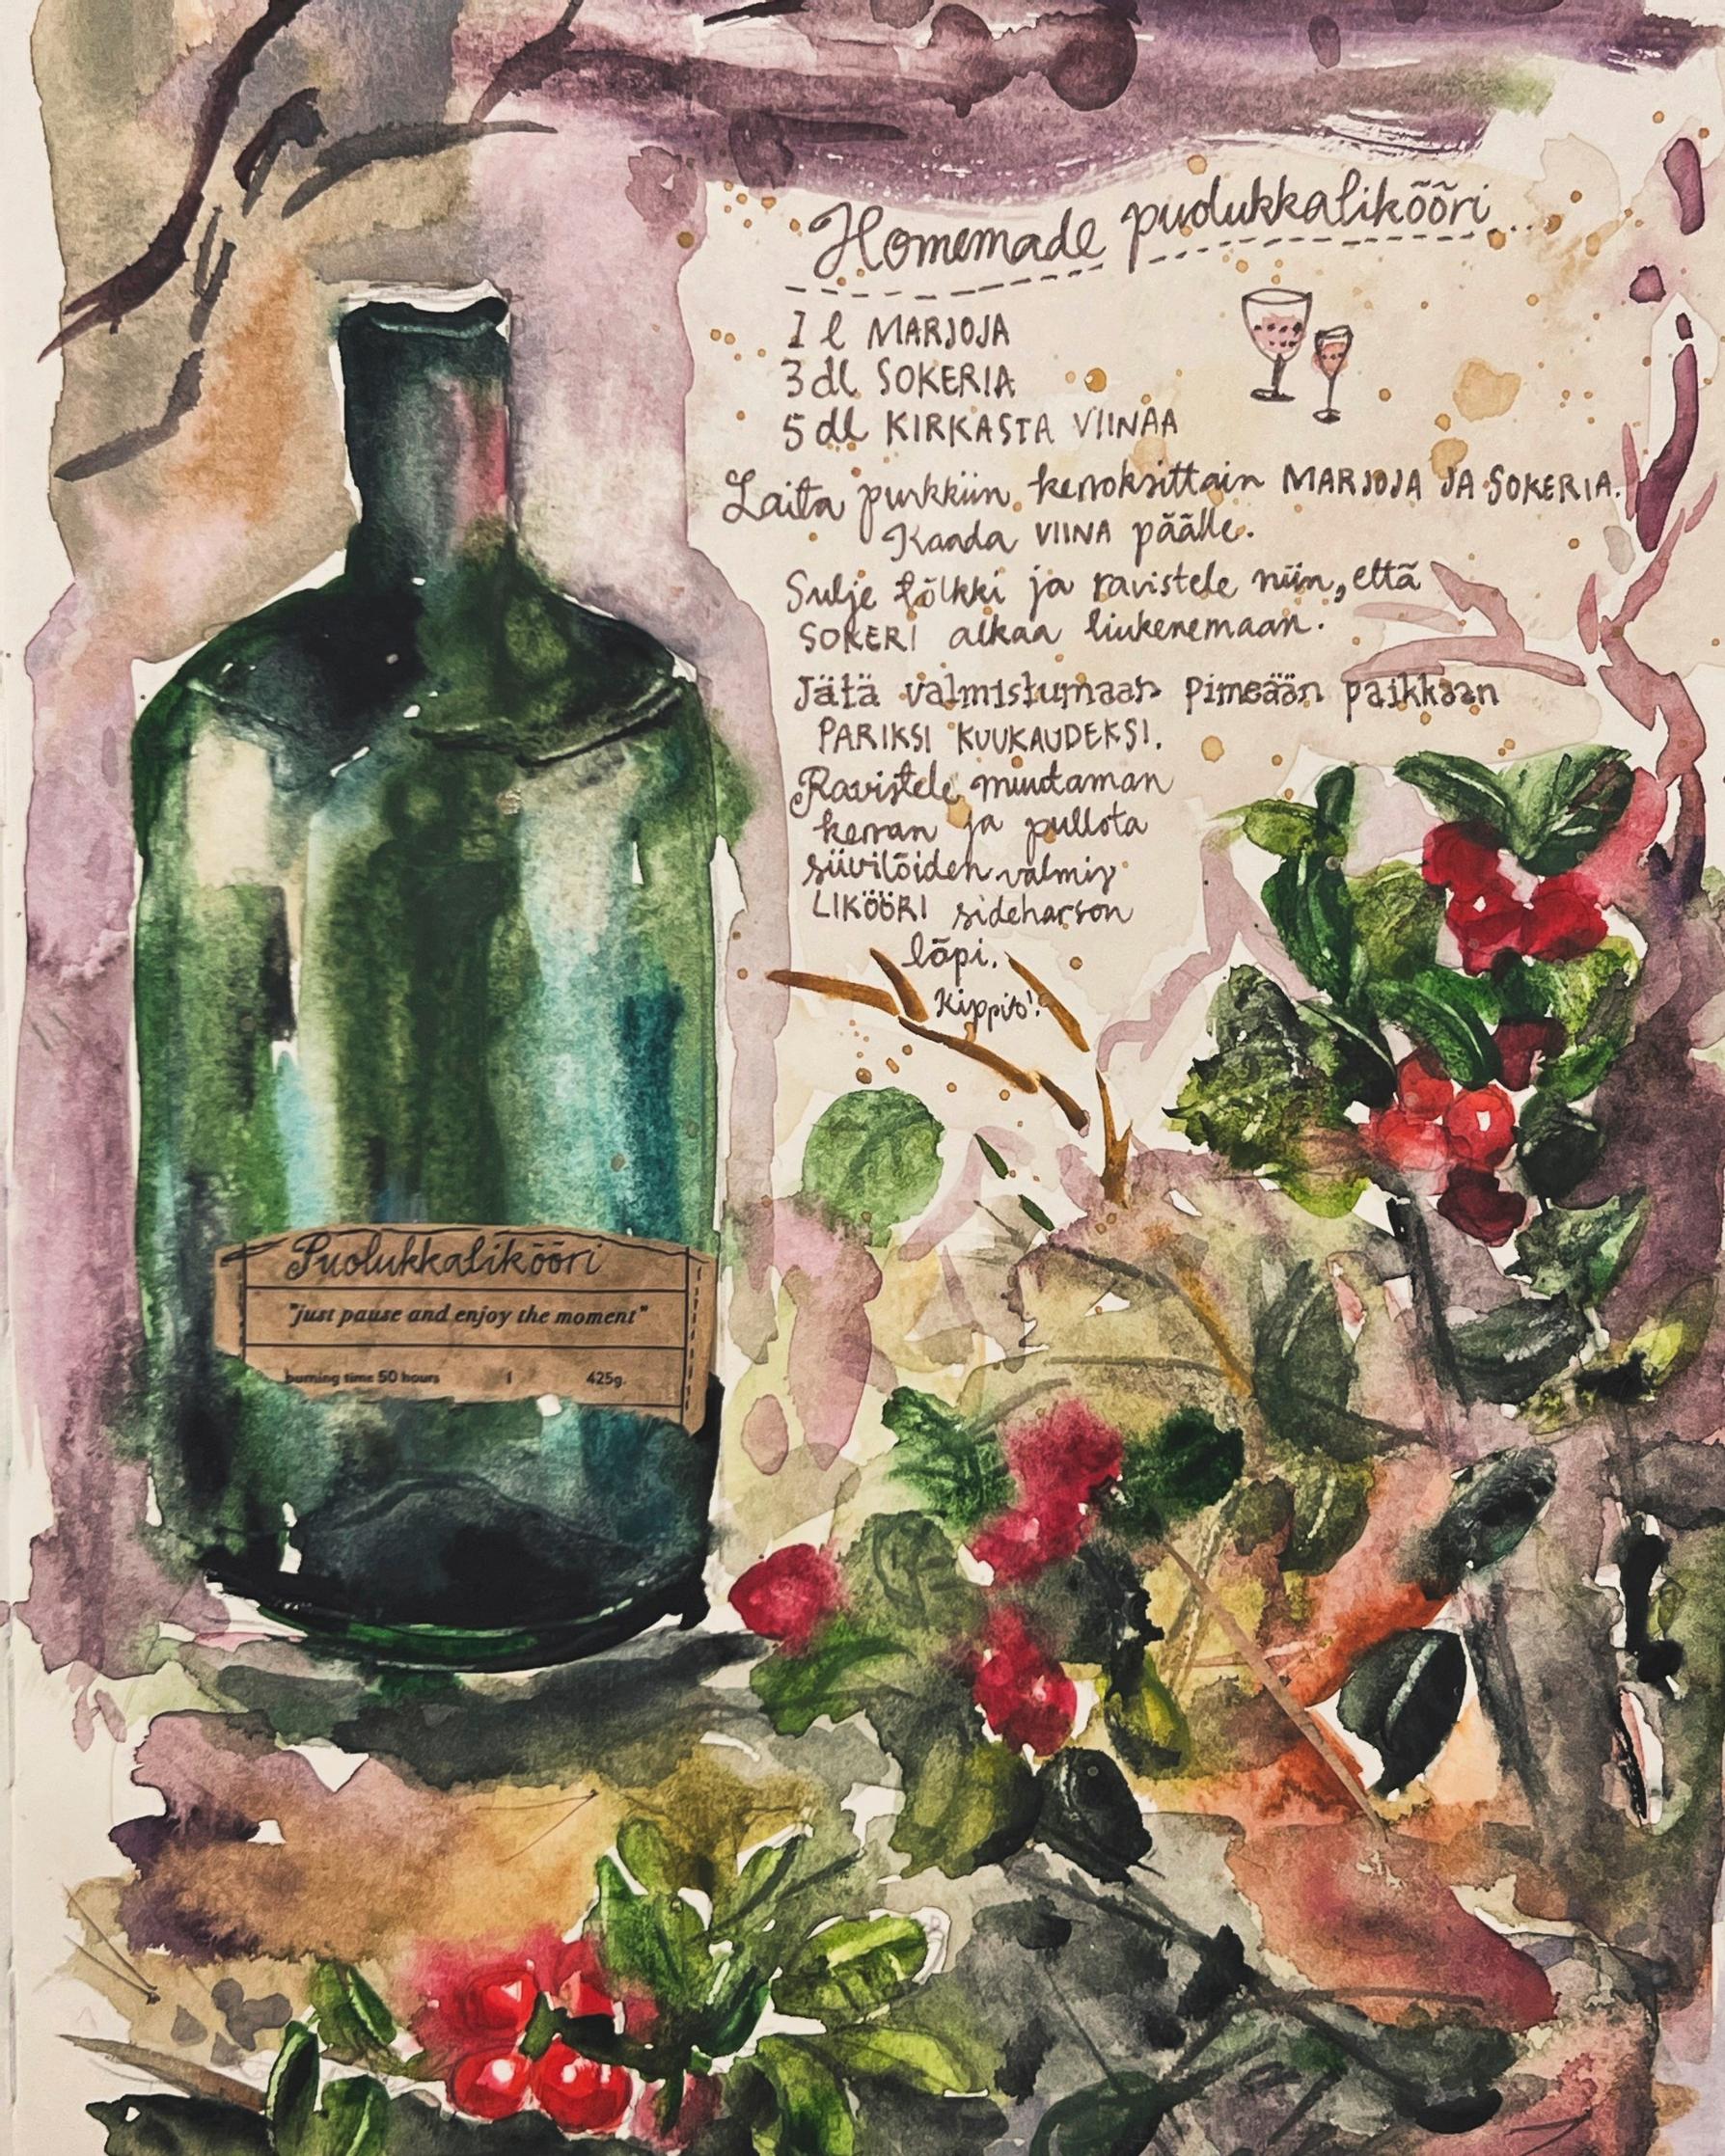 Homemade puolukkalikööri...
1 l MARJOJA
3 dl SOKERIA
5 dl KIRKASTA VIINAA
Laita purkkiin kerroksittain MARJOJA JA SOKERIA.
Kaada VIINA päälle.
Sulje tölkki ja ravistele niin, että
SOKERI alkaa liukenemaan.
Jätä valmistumaan pimeään paikkaan
PARIKSI KUUKAUDEKSI.
Ravistele muutaman
kerran ja pullota
siivilöiden valmis
LIKÖÖRI sideharson
läpi.
Kippis!
Puolukkalikööri
"just pause and enjoy the moment"
burning time 50 hours | 425g.